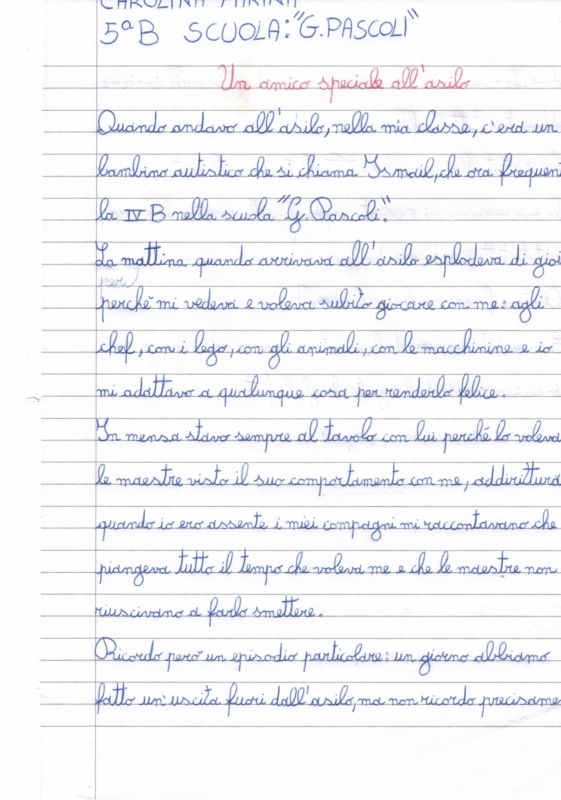 CAROLINA MARINA
5ªB SCUOLA: "G. PASCOLI"
Un amico speciale all'asilo
Quando andavo all'asilo, nella mia classe, c'era un
bambino autistico che si chiama Ismail, che ora frequen
la IV B nella scuola "G. Pascoli".
La mattina quando arrivava all'asilo esplodeva di gioi
perchè mi vedeva e voleva subito giocare con me: agli
chef, con i lego, con gli animali, con le macchinine e io
mi adattavo a qualunque cosa per renderlo felice.
In mensa stavo sempre al tavolo con lui perché lo voleva
le maestre visto il suo comportamento con me, addirittura
quando io ero assente i miei compagni mi raccontavano che
piangeva tutto il tempo che voleva me e che le maestre non
riuscivano a farlo smettere.
Ricordo però un episodio particolare: un giorno abbiamo
fatto un'uscita fuori dall'asilo, ma non ricordo precisame